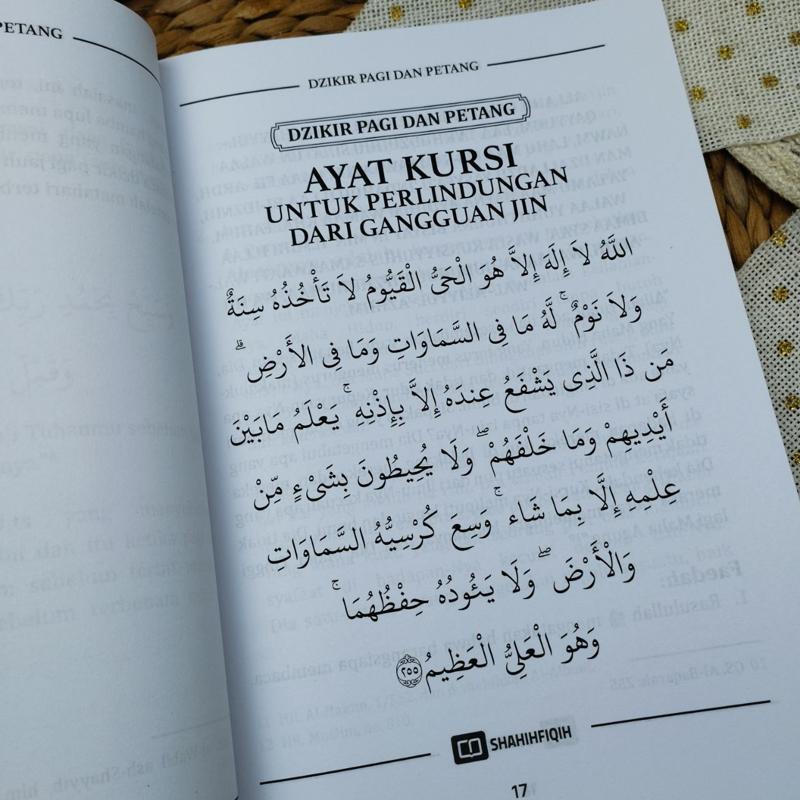 PETANG
DZIKIR PAGI DAN PETANG
DZIKIR PAGI DAN PETANG
AYAT KURSI
UNTUK PERLINDUNGAN
DARI GANGGUAN JIN
اللَّهُ لاَ إِلَهَ إِلاَّ هُوَ الْحَيُّ الْقَيُّومُ لاَ تَأْخُذُهُ سِنَةٌ
وَلاَ نَوْمٌ ۚ لَّهُ مَا فِى السَّمَاوَاتِ وَمَا فِى الأَرْضِ ۗ
مَن ذَا الَّذِى يَشْفَعُ عِندَهُ إِلاَّ بِإِذْنِهِ ۚ يَعْلَمُ مَابَيْنَ
أَيْدِيهِمْ وَمَا خَلْفَهُمْ ۖ وَلَا يُحِيطُونَ بِشَىْءٍ مِّنْ
عِلْمِهِ إِلَّا بِمَا شَاءَ ۚ وَسِعَ كُرْسِيُّهُ السَّمَاوَاتِ
وَالْأَرْضَ ۖ وَلَا يَئُودُهُ حِفْظُهُمَا ۚ
وَهُوَ الْعَلِىُّ الْعَظِيمُ ٢٥٥
SHAHIHFIQIH
17